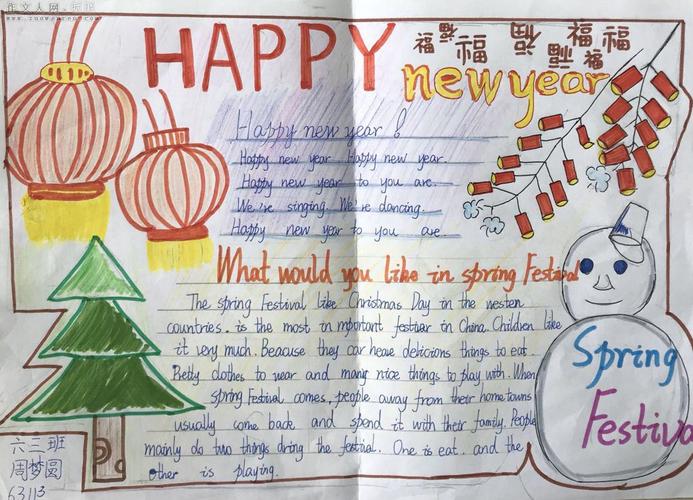 作文人网
www.zuowenren.com
HAPPY
new year
福 福 福 福 福 福 福
Happy new year!
Happy new year Happy new year.
Happy new year to you are.
We're singing. We're dancing.
Happy new year to you are.
What would you like in spring Festival
The spring Festival like Christmas Day in the westen
countries. is the most in mportant festiver in China. Children like
it very much. Beacuse they car heave delicions things to eat.
Pretty clothes to wear and many nice things to play with. When
spring Festival comes, people away from their home towns
usually come back and spend it with their family. People
mainly do two things dring the festival. One is eat. and the
other is playing.
Spring
Festival
六三班
周梦圆
63113